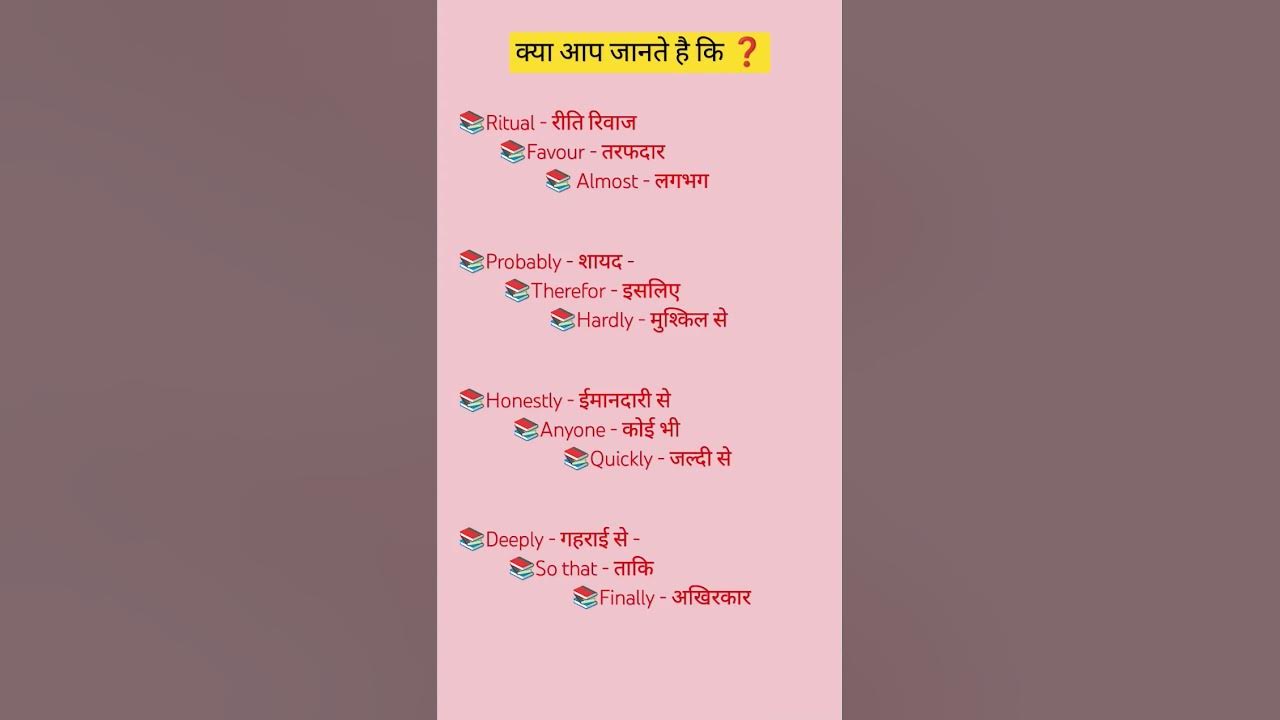 क्या आप जानते है कि ❓
📚Ritual - रीति रिवाज
📚Favour - तरफदार
📚 Almost - लगभग
📚Probably - शायद -
📚Therefor - इसलिए
📚Hardly - मुश्किल से
📚Honestly - ईमानदारी से
📚Anyone - कोई भी
📚Quickly - जल्दी से
📚Deeply - गहराई से -
📚So that - ताकि
📚Finally - अखिरकार